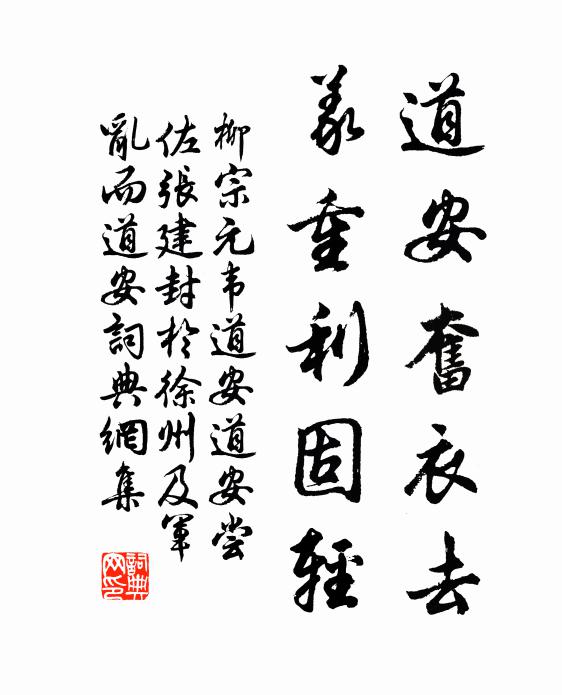 道安奮衣去
義重利固輕
柳宗元韦道安道安嘗
佐張建封於徐州及軍
亂而道安詞典網集
詞典
网印